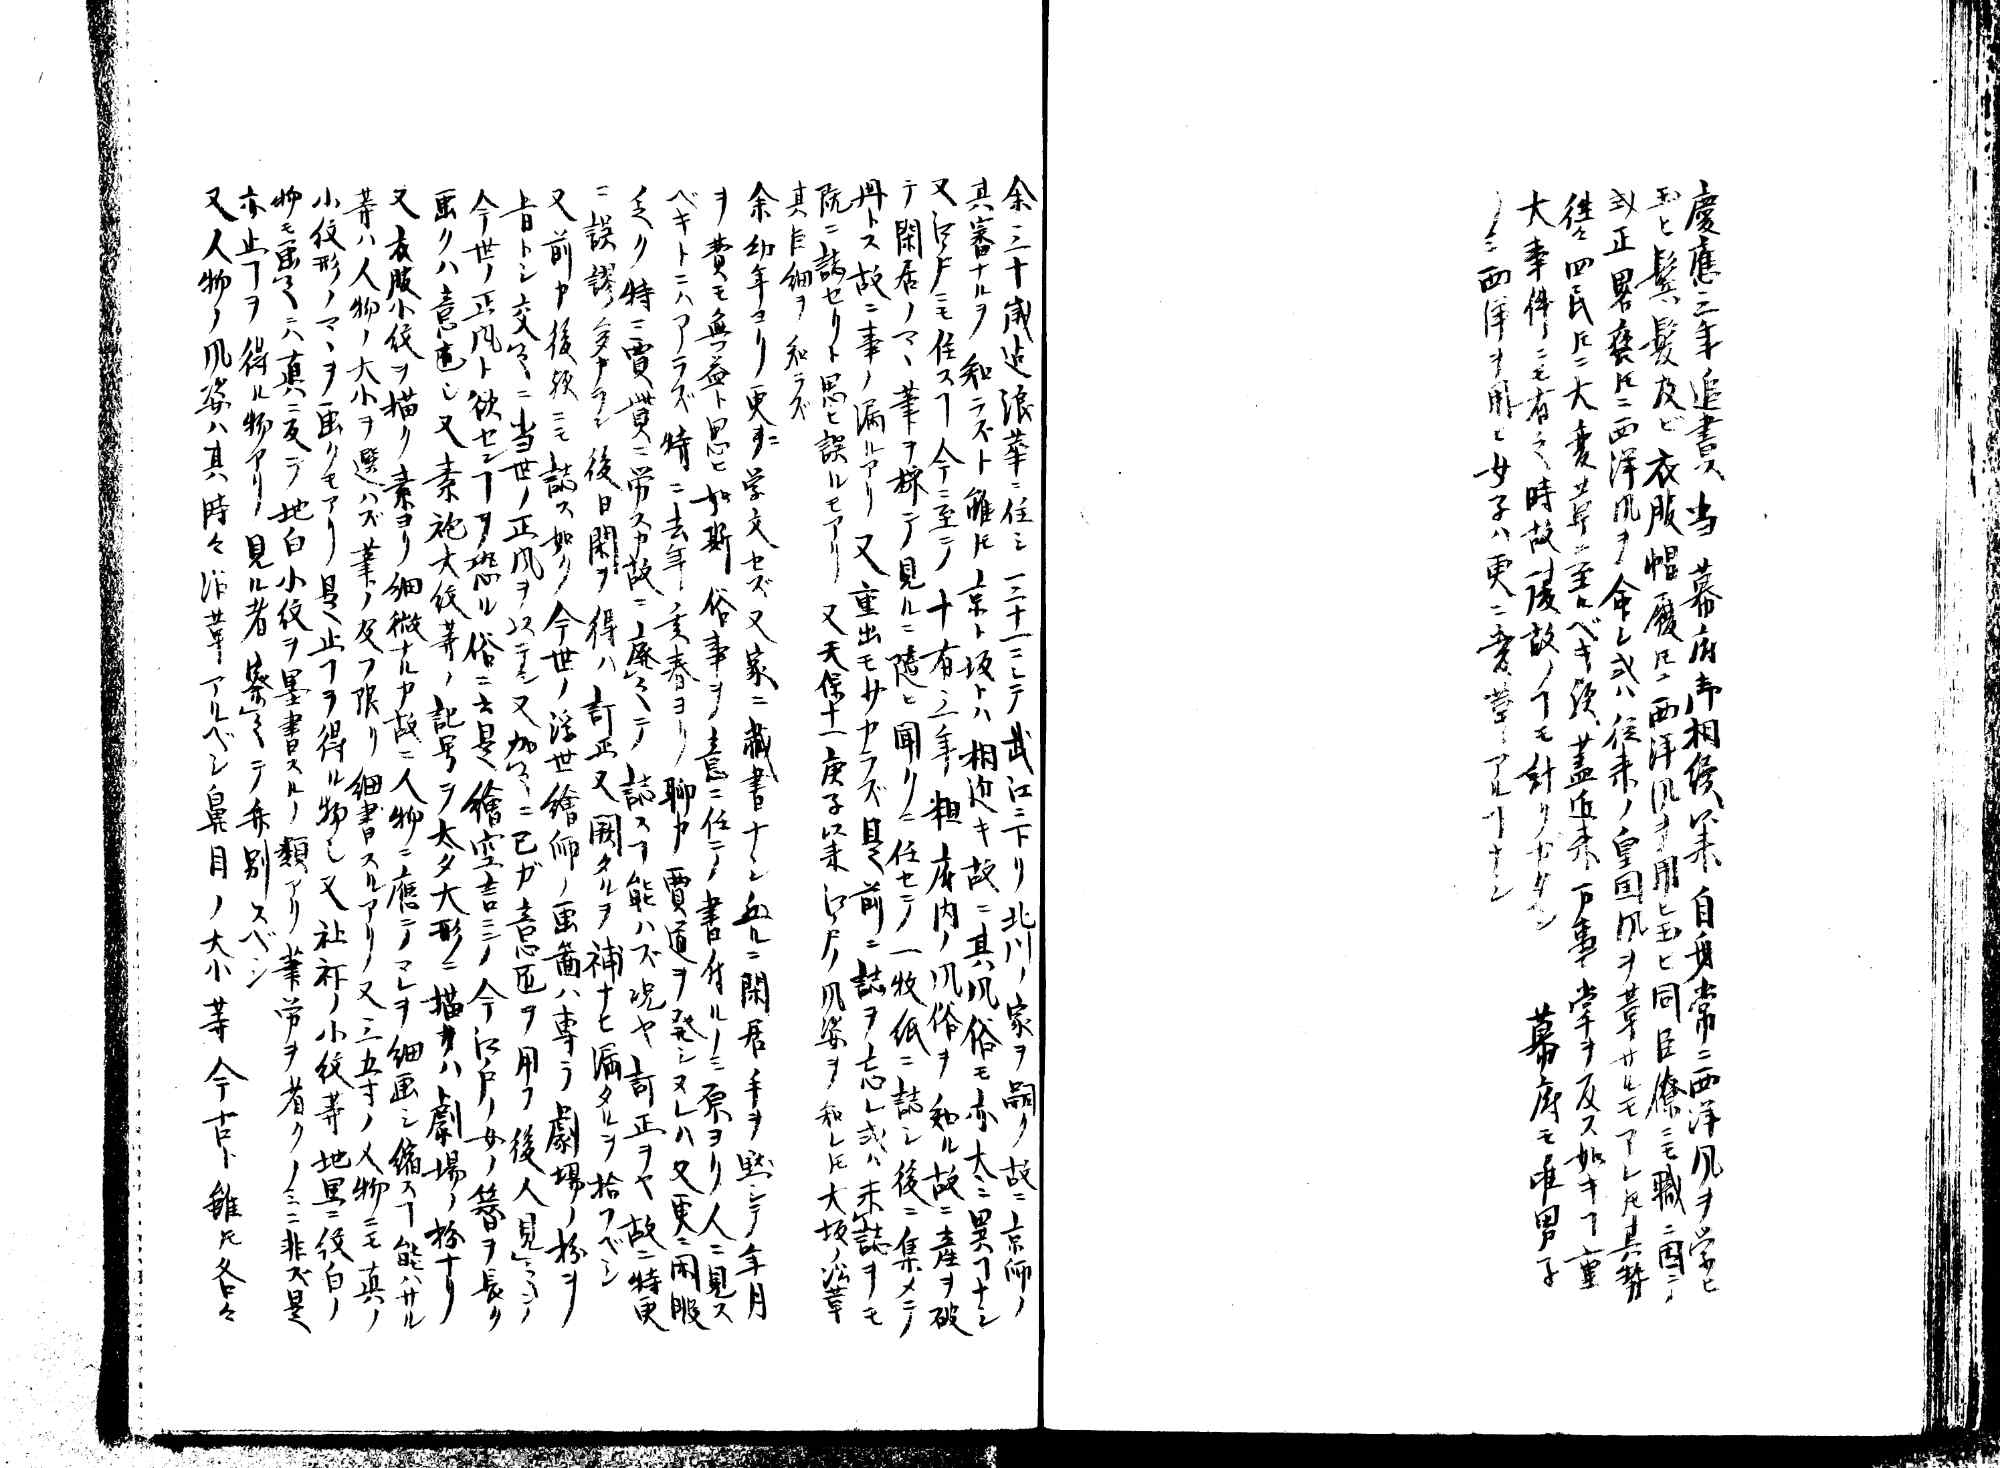 慶應三年追書ス当 幕府御相續以来自身常ニ西洋風ヲ学ヒ
玉ヒ鬢髪及ビ衣服帽履ニ西洋風ヲ用ヒ玉ヒ同臣僚ニモ職ニ因ミ
或正畧褻トモニ西洋風ヲ命レ或ハ従来ノ皇国風ヲ葺サルモアレトモ其勢
往々四民トモニ大変革ニ至ルベキ欤蓋近来万事掌ヲ反ス如キヿ重
大事件ニモ有之時故ノヿモ計リガタシ 幕府モ唯男子
ノミ西洋ヲ用ヒ女子ハ更ニ変革アルヿナシ
余三十歳迠浪華ニ住シ三十一ニシテ武江ニ下リ北川ノ家ヲ嗣ク故ニ京師ノ
其審ナルヲ知ラズト雖トモ京ト坂トハ相近キ故ニ其風俗モ亦大ニ異ヿナシ
又江戸ニモ住スヿ今ニ至テ十有三年粗府内ノ風俗ヲ知ル故ニ産ヲ破
テ閑居ノマヽ筆ヲ採テ見ルニ随ヒ聞クニ任セテ一牧紙ニ誌シ後ニ集メテ
冊トス故ニ事ノ漏ルアリ又重出モサカラズ是前ニ誌ヲ忘レ或ハ未誌ヲモ
既ニ誌セリト思ヒ誤ルモアリ 又天保十一庚子以来江戸ノ風姿ヲ知レトモ大坂ノ沿革
其巨細ヲ知ラズ
余幼年ヨリ更ニ学文セズ又家ニ蔵書ナシ然ルニ閑居手ヲ黙シテ年月
ヲ費モ無益ト思ヒ如斯俗事ヲ意ニ任テ書付ルノミ原ヨリ人ニ見ス
ベキトニハアラズ特ニ去年ノ亥春ヨリ聊カ賈道ヲ発シヌレハ又更ニ閑暇
乏ク特ニ賈貰ニ労スカ故ニ廃之テ誌スヿ能ハズ况ヤ訂正ヲヤ故ニ特更
ニ誤謬多カラン後日閑ヲ得ハ訂正又闕タルヲ補ナヒ漏タルヲ拾フベシ
又前ヤ後欤ニモ誌ス如ク今世ノ浮世繪師ノ画図ハ専ラ劇場ノ扮ヲ
旨トシ交之ニ当世ノ正風ヲ以テシ又加之ニ己ガ意匠ヲ用フ後人見之テ
今世ノ正風ト欲センヿヲ恐ル俗ニ云是繪空言ニテ今江戸ノ女ノ簪ヲ長ク
画クハ意匠也又素袍大紋等ノ記号ヲ太タ大形ニ描クハ劇場ノ扮ナリ
又衣服小紋ヲ描ク素ヨリ細微ナルカ故ニ人物ニ應テマレヲ細画シ縮スヿ能ハサル
等ハ人物ノ大小ヲ選ハズ筆ノ及フ限リ細書スルアリ又三五寸ノ人物ニモ真ノ
小紋形ノマヽヲ画クモアリ是止ヿヲ得ル物也又社裃ノ小紋等地黒ニ紋白ノ
物モ画之ニハ真ニ反テ地白小紋ヲ墨書スルノ類アリ筆労ヲ省クノミニ非ズ是
亦止ヿヲ得ル物アリ見ル者察之テ弁別スベシ
又人物ノ風姿ハ其時々沿革アルベシ鼻目ノ大小等今古ト雖トモ各々